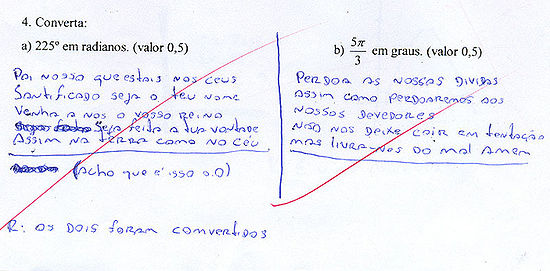 4. Converta:
a) 225º em radianos. (valor 0,5)
Pai nosso que estais nos ceus
Santificado seja o teu nome
Venha a nos o vosso reino
Seja feita a tua vontade
Assim na terra como no céu
(acho que é isso o.O)
b) 5π/3 em graus. (valor 0,5)
Perdoa as nossas dividas
assim como perdoaremos aos
nossos devedores
Não nos deixe cair em tentação
mas livra-nos do mal Amem
R: os dois foram comvertidos